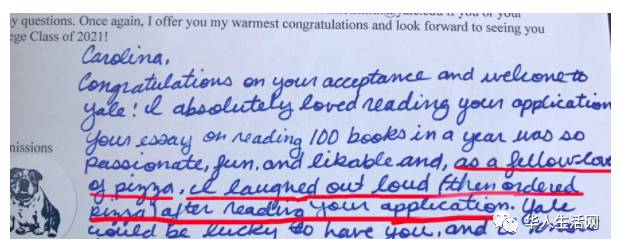 y questions. Once again, I offer you my warmest congratulations and look forward to seeing you
ege Class of 2021!
Carolina,
Congratulations on your acceptance and welcome to
Yale! I absolutely loved reading your application
Your essay on reading 100 books in a year was so
nissions
passionate, fun, and likable and, as a fellow lov
of pizza, I laughed out loud (then ordered
pizza) after reading your application. Yale
would be lucky to have you, and to
华人生活网